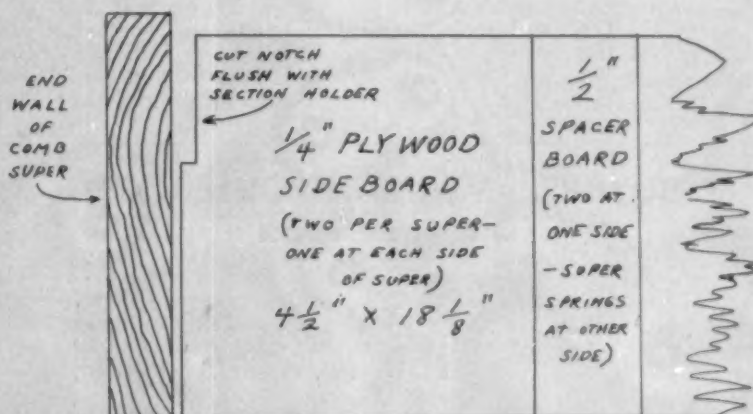 END
WALL
OF
COMB
SUPER
CUT NOTCH
FLUSH WITH
SECTION HOLDER
1/4" PLYWOOD
SIDE BOARD
(TWO PER SUPER-
ONE AT EACH SIDE
OF SUPER)
4 1/2" X 18 1/8"
1/2"
SPACER
BOARD
(TWO AT
ONE SIDE
-SUPER
SPRINGS
AT OTHER
SIDE)